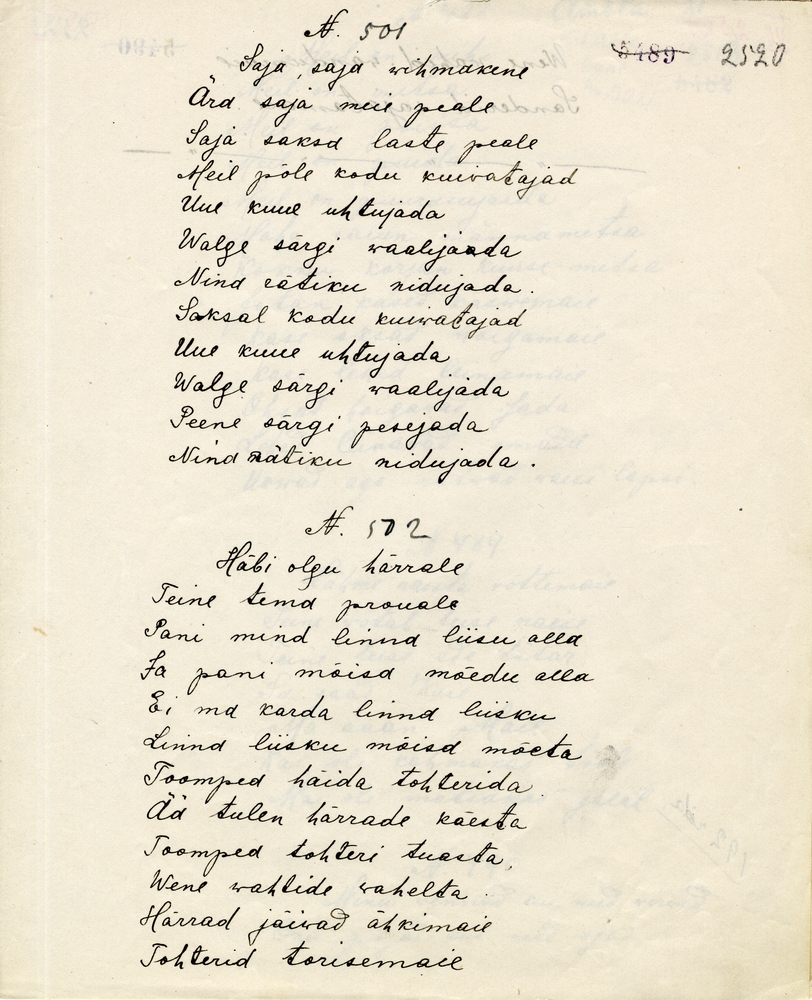 N. 501
5489 2520
Saja, saja wihmakene
Ärd saja meie peale
Saja saksa laste peale
Meil põle kodu kuiwatajad
Uue kuue uhtujada
Walge särgi waalijaada
Nind rätiku nidujada.
Saksal kodu kuiwatajad
Uue kuue uhtujada
Walge särgi waalijada
Peene särgi pesejada
Nind rätiku nidujada.
N. 502
Häbi olgu härrale
Teine tema prouale
Pani mind linna liisu alla
Ja pani mõisa mõedu alla
Ei ma karda linna liisku
Linna liisku mõisa mõeta
Toomped häida tohterida
Ää tulen härrade käesta
Toomped tohteri tuasta,
Wene wahtide wahelta.
Härrad jäiwad ähkimaie
Tohterid torisemaie